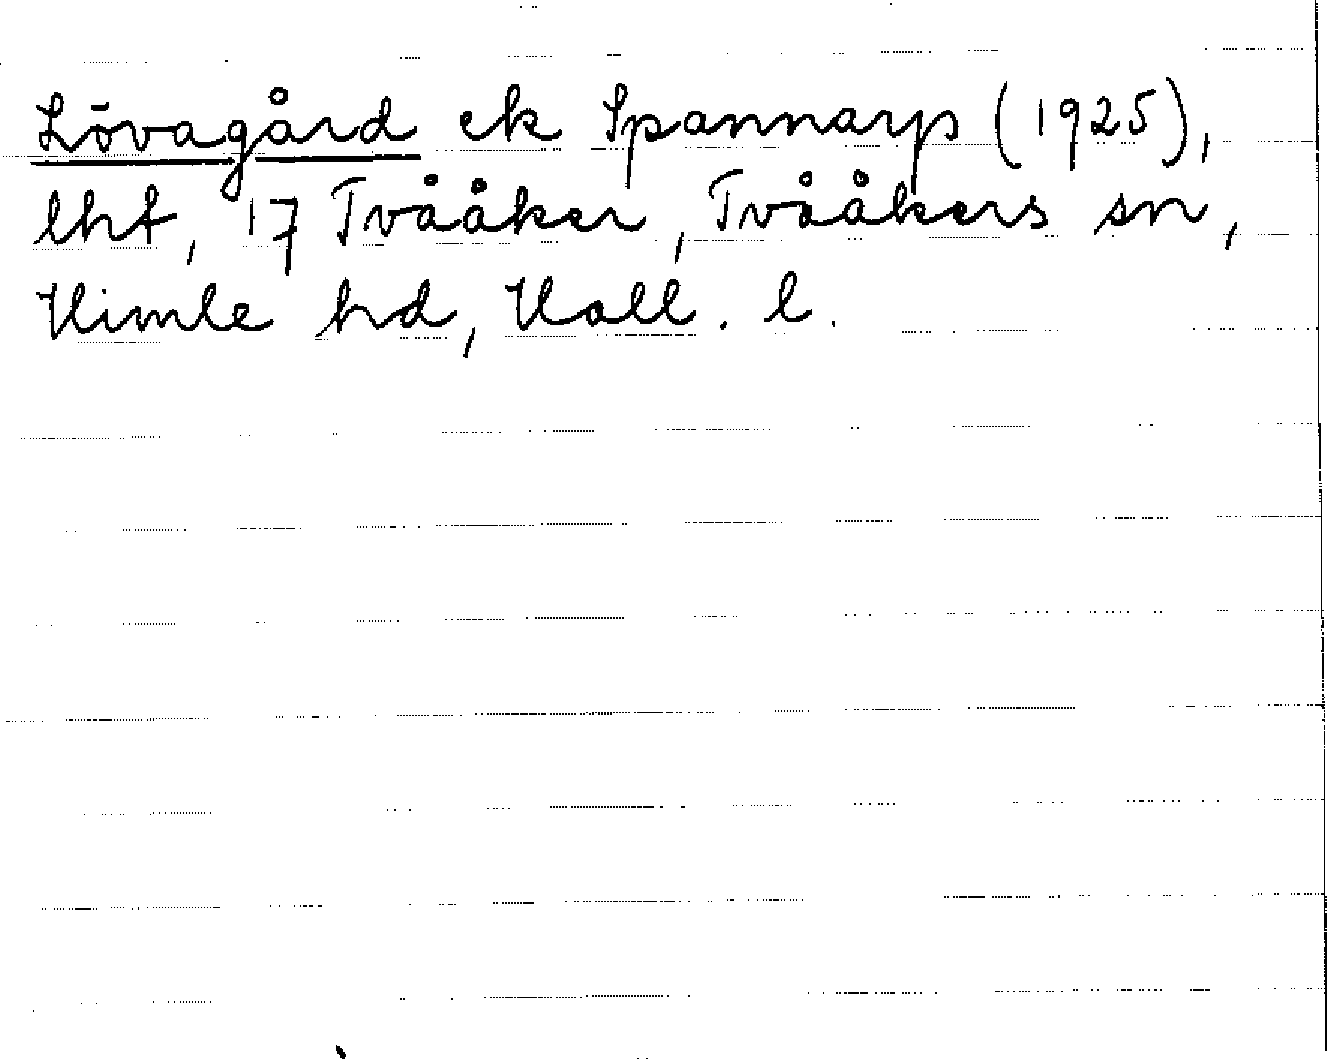 Lövagård ek Spannarp (1925),
lht, 17 Tvååker, Tvååkers sn,
Himle hd, Hall. l.